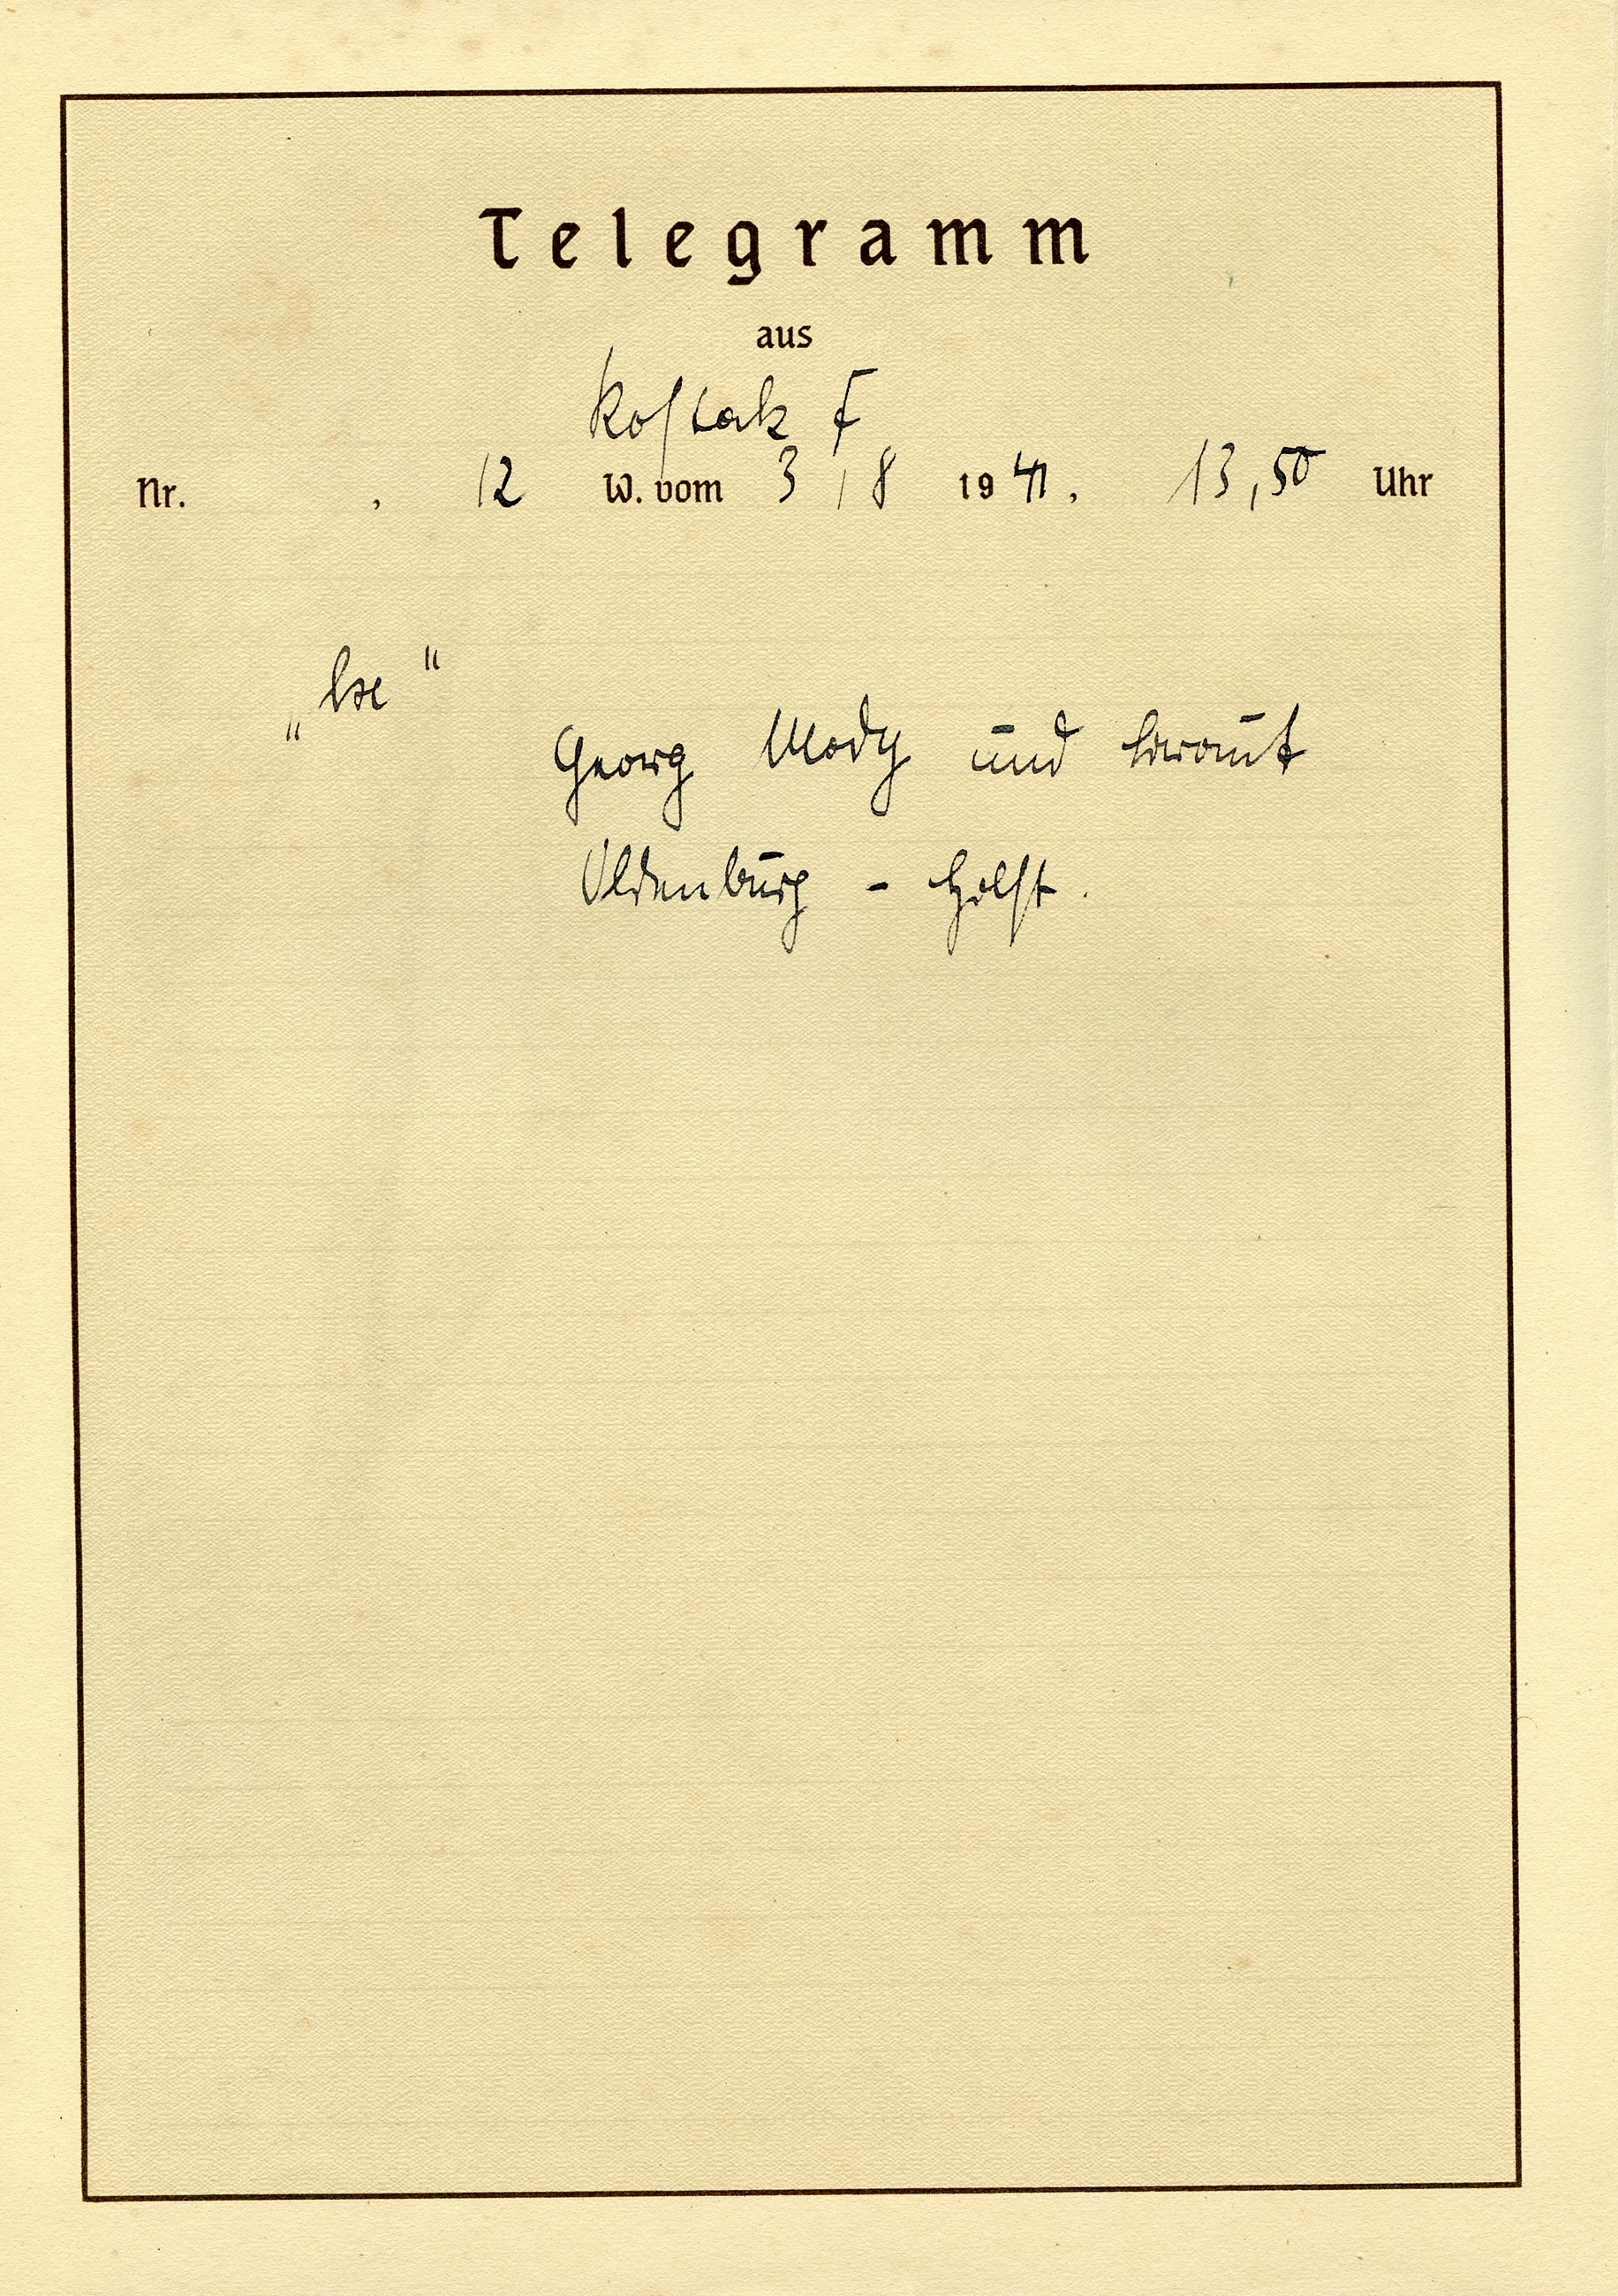 Telegramm
aus
Rostock F
Nr. . 12 W. vom 3 / 8 1941. 13,50 Uhr
„ lxe "
Georg Mody und Braut
Oldenburg - Holst.